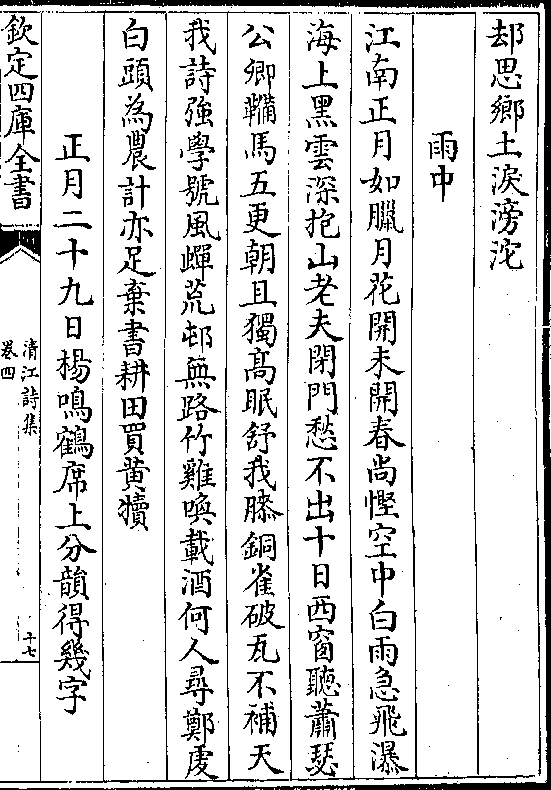 却思鄉土淚滂沱
雨中
江南正月如臘月花開未開春尚慳空中白雨急飛瀑
海上黑雲深抱山老夫閉門愁不出十日西窗聽蕭瑟
公卿鞴馬五更朝且獨髙眠舒我膝銅雀破瓦不補天
我詩強學號風蟬荒邨無路竹雞喚載酒何人尋鄭虔
白頭為農計亦足棄書耕田買黄犢
正月二十九日楊鳴鶴席上分韻得幾字
欽定四庫全書
清江詩集
卷四
十七